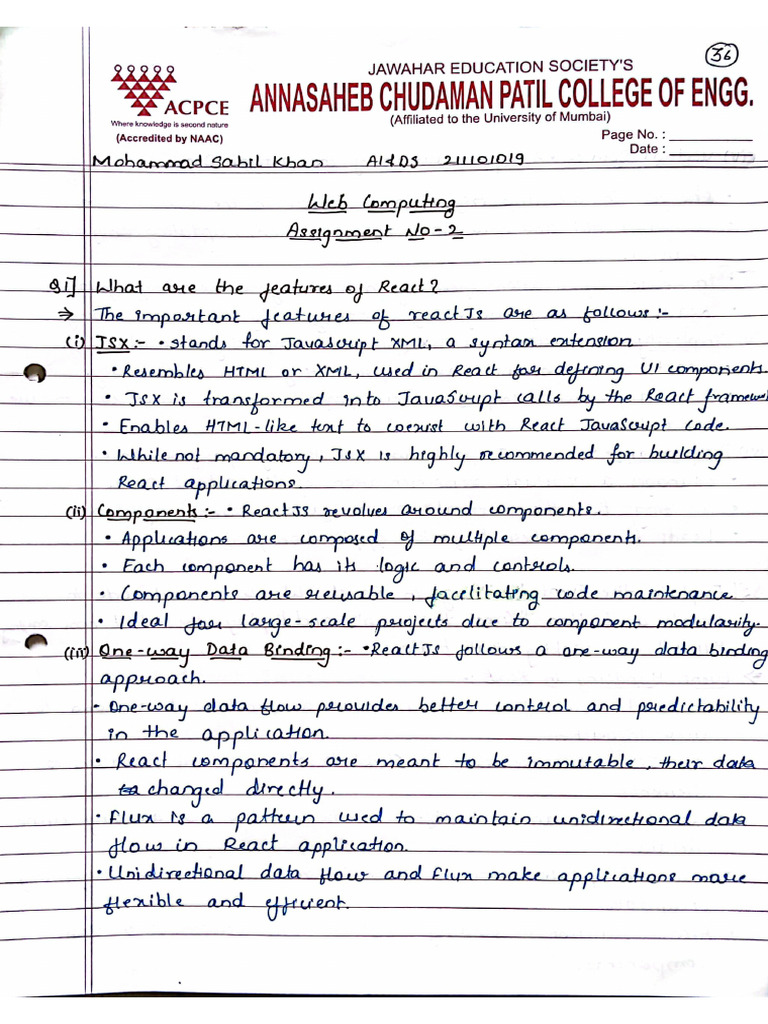 36
JAWAHAR EDUCATION SOCIETY'S
ANNASAHEB CHUDAMAN PATIL COLLEGE OF ENGG.
(Affiliated to the University of Mumbai)
ACPCE
Where knowledge is second nature
(Accredited by NAAC)
Page No. :
Date :
Mohammad Sahil Khan AI&DS 211101019
Web Computing
Assignment No-2
Q1] What are the features of React?
⇒ The important features of reactJs are as follows:-
(i) JSX:- • stands for JavaScript XML, a syntax extension
• Resembles HTML or XML, used in React for defining UI components.
• JSX is transformed into JavaScript calls by the React framework
• Enables HTML-like text to coexist with React JavaScript code.
• While not mandatory, JSX is highly recommended for building
React applications.
(ii) Components:- • ReactJS revolves around components.
• Applications are composed of multiple components.
• Each component has its logic and controls.
• Components are reusable, facilitating code maintenance
• Ideal for large-scale projects due to component modularity.
(iii) One-way Data Binding:- • ReactJs follows a one-way data binding
approach.
- One-way data flow provides better control and predictability
in the application.
• React components are meant to be immutable, their data
changed directly.
• Flux is a pattern used to maintain unidirectional data
flow in React application.
• Unidirectional data flow and Flux make applications more
flexible and efficient.